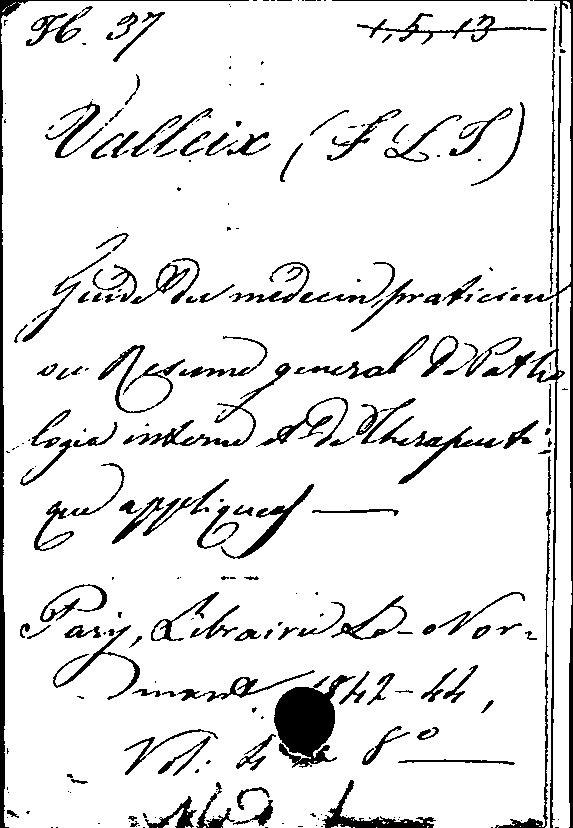 H. 37 1,5,13
Valleix (F. L. I.)
Guide du medecin praticien
ou Resumé general de Patho
logie interne et de Therapeuti-
que appliquees —
Paris, Librairie Le-Nor-
mant 1842-44,
Vol. 4 8º —